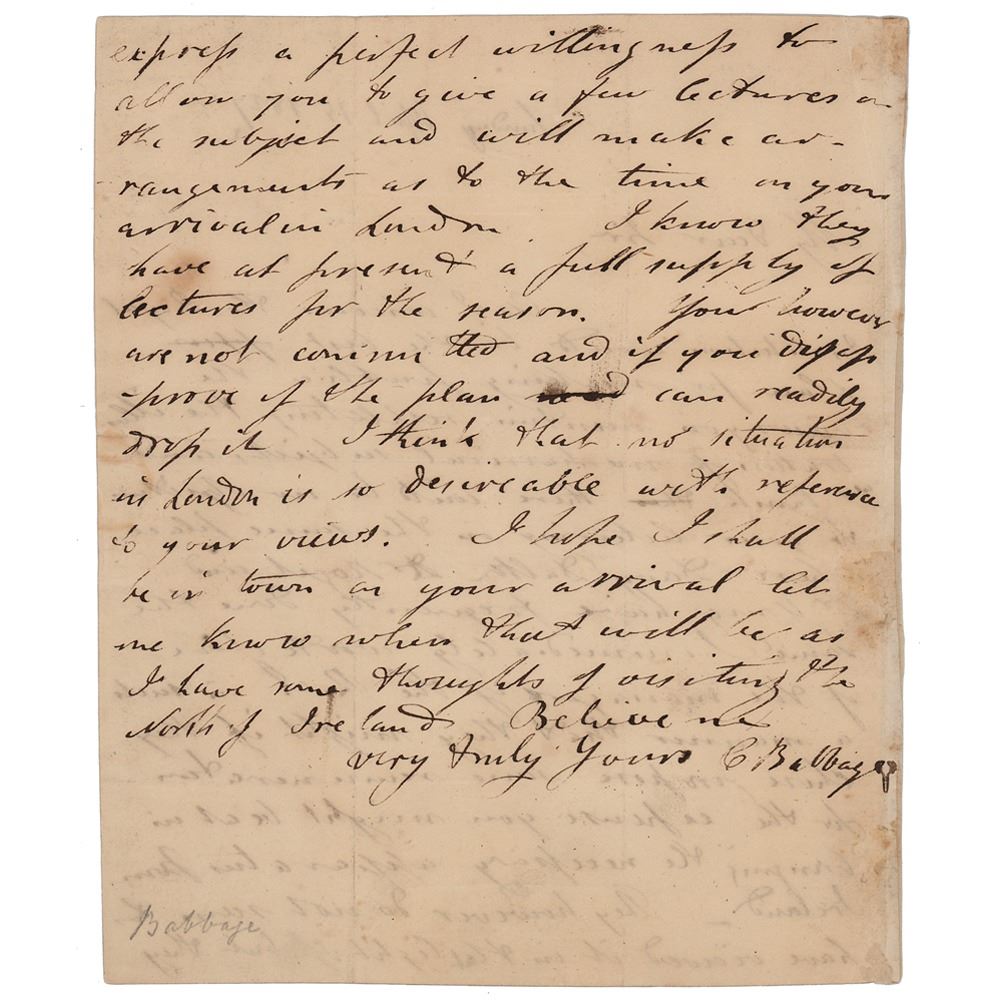 express a perfect willingness to
allow you to give a few lectures on
the subject and will make ar-
rangements as to the time on your
arrival in London. I know they
have at present a full supply of
lectures for the season. You however
are not committed and if you disap
-prove of the plan can readily
drop it I think that no situation
in London is so desireable with reference
to your views. I hope I shall
be in town on your arrival let
me know when that will be as
I have some thoughts of visiting the
North of Ireland Believe me
very truly Yours C Babbage
Babbage